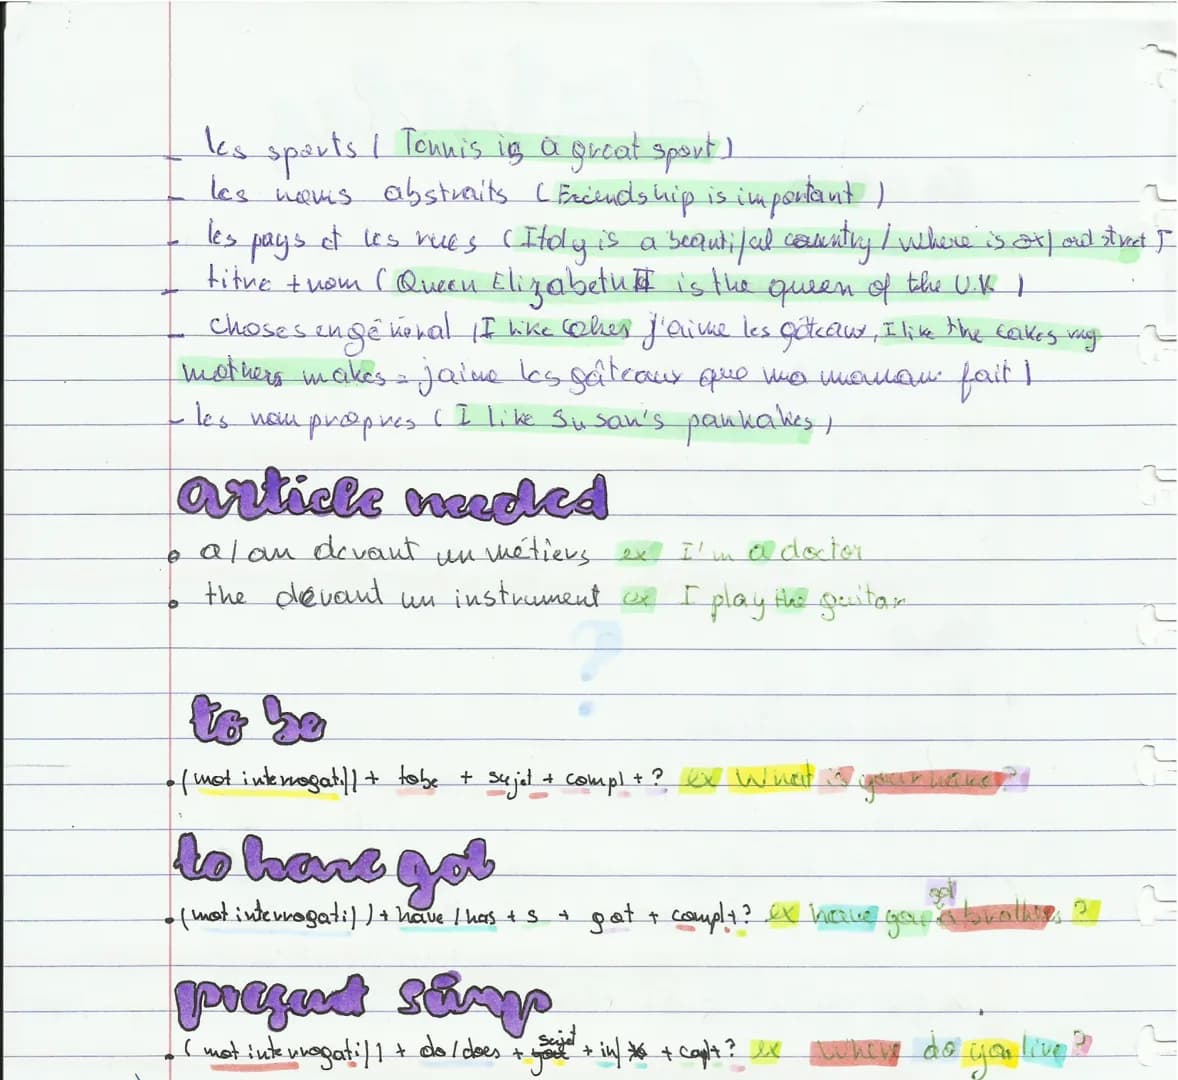 - les sports ( Tennis is a great sport )
- les noms abstraits ( Friendship is important )
- les pays et les rues ( Italy is a beautiful country / where is oxford street )
- titre + nom ( Queen Elizabeth II is the queen of the U.K )
- choses en général ( I like cakes j'aime les gâteaux, I like the cakes my
mothers makes = j'aime les gâteaux que ma maman fait )
- les nom propres ( I like Susan's pankakes )
article needed
• a / an devant un métiers ex I'm a doctor
• the devant un instrument ex I play the guitar
?
to be
• ( mot interrogatif ) + to be + sujet + compl + ? ex What is your name ?
to have got
• ( mot interrogatif ) + have / has + s + got + compl + ? ex have you got a brothers ?
present simp
• ( mot interrogatif ) + do / does + sujet + inf + cplt + ? ex Where do you live ?